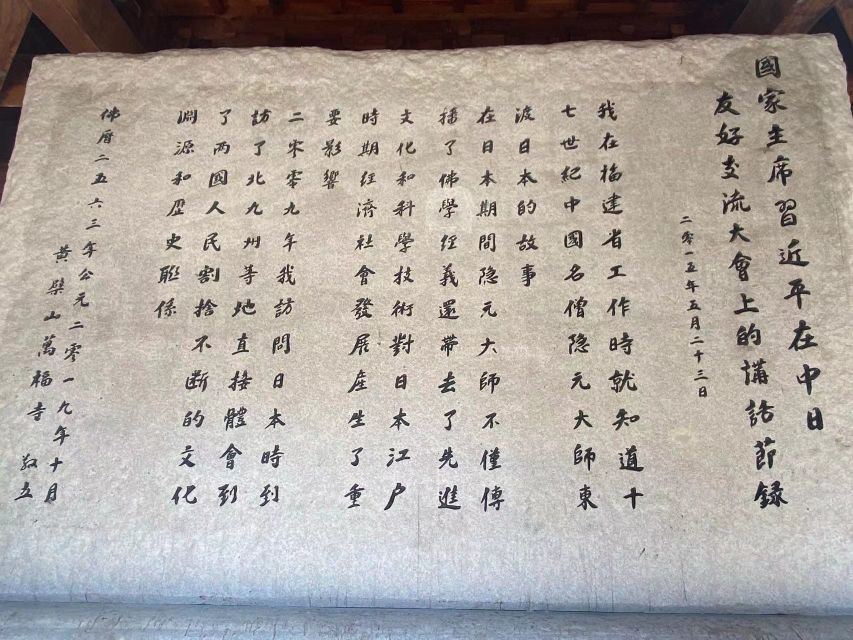 國家主席習近平在中日
友好交流大會上的講話節録
二零一五年五月二十三日
我在福建省工作時就知道十
七世紀中國名僧隐元大師東
渡日本的故事
在日本期間隐元大師不僅傳
播了佛學經義還帶去了先進
文化和科學技術對日本江户
時期經濟社會發展産生了重
要影響
二零零九年我訪問日本時到
訪了北九州等地直接體會到
了两國人民割捨不断的文化
淵源和歷史聯係
佛曆二五六三年公元二零一九年十月
黄檗山萬福寺 敬立